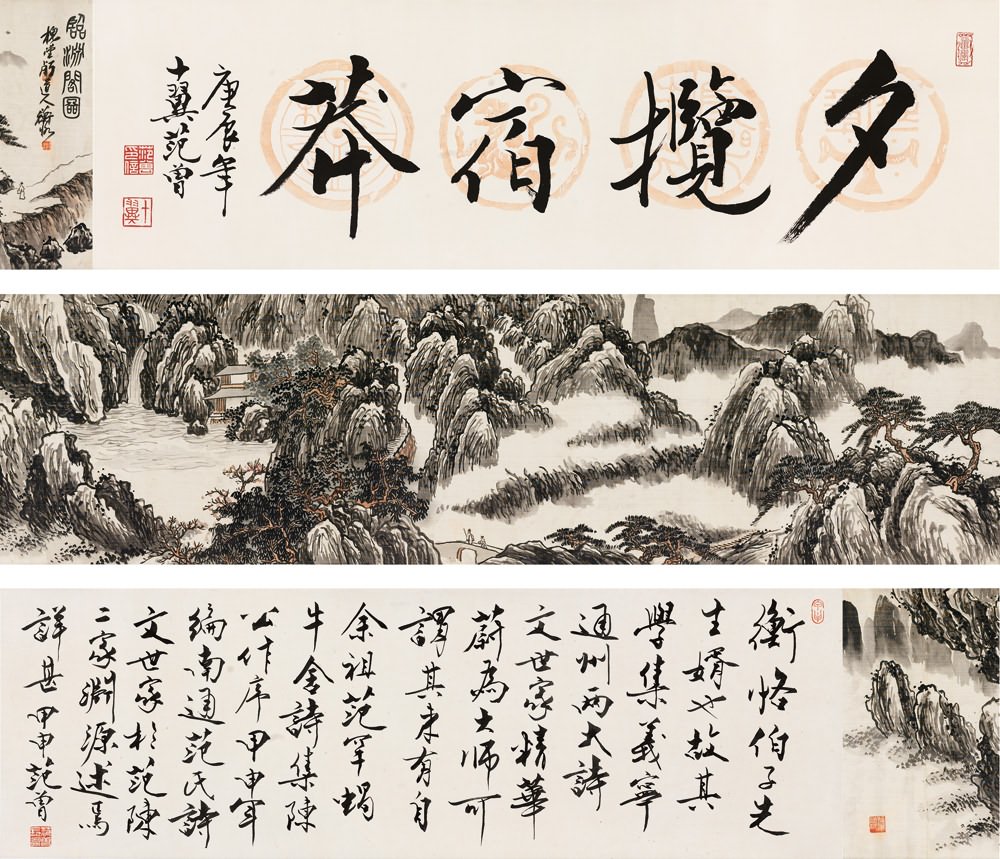 夕攬宿莽
庚辰年
十翼范曾
詔洲閣圖
衡恪伯子先
生婿也故其
學集義寧
通州兩大詩
文世家精華
蔚為大師可
謂其未有自
余祖范罕蝎
牛舍詩集陳
公作序甲申年
編南通范氏詩
文世家於范陳
二家淵源述焉
詳甚甲申范曾